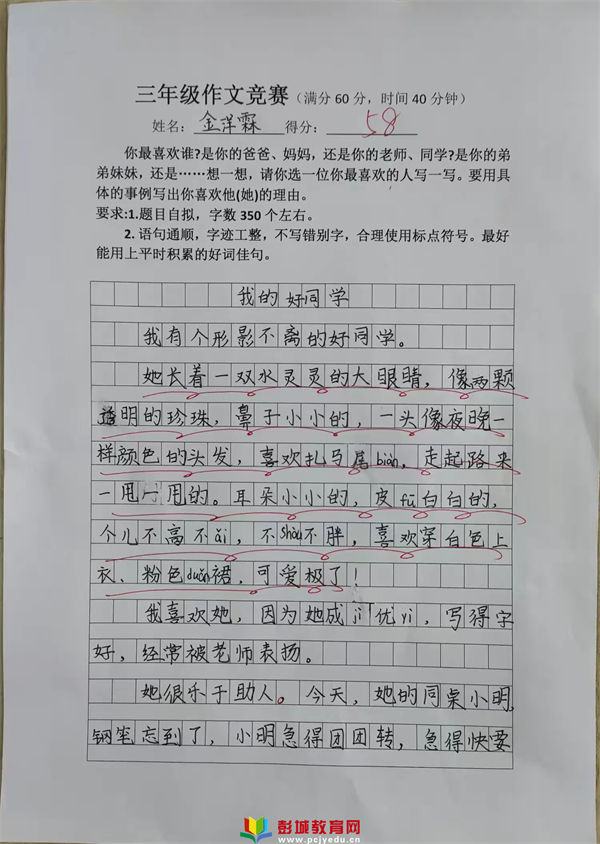 三年级作文竞赛（满分 60 分，时间 40 分钟）
姓名：金洋霖 得分：58
你最喜欢谁?是你的爸爸、妈妈，还是你的老师、同学?是你的弟
弟妹妹，还是……想一想，请你选一位你最喜欢的人写一写。要用具
体的事例写出你喜欢他(她)的理由。
要求:1.题目自拟，字数 350 个左右。
2. 语句通顺，字迹工整，不写错别字，合理使用标点符号。最好
能用上平时积累的好词佳句。
我的好同学
我有个形影不离的好同学。
她长着一双水灵灵的大眼睛，像两颗
透明的珍珠，鼻子小小的，一头像夜晚一
样颜色的头发，喜欢扎马尾biàn，走起路来
一甩一甩的。耳朵小小的，皮fū白白的，
个儿不高不ǎi，不shòu不胖，喜欢穿白色上
衣、粉色duǎn裙，可爱极了！
我喜欢她，因为她成jì优yì，写得字
好，经常被老师表扬。
她很乐于助人。今天，她的同桌小明，
钢笔忘到了，小明急得团团转，急得快要
彭城教育网
www.pcjyedu.cn